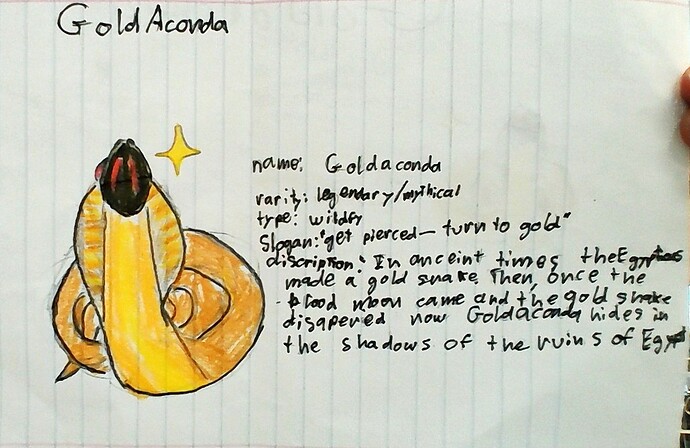 GoldAconda
name: Goldaconda
rarity: legendary/mythical
type: wildfy
Slogan: "get pierced— turn to gold"
discription: In anceint times the Egyptians
made a gold snake. Then, once the
blood moon came and the gold snake
disapered now Goldaconda hides in
the shadows of the ruins of Egypt